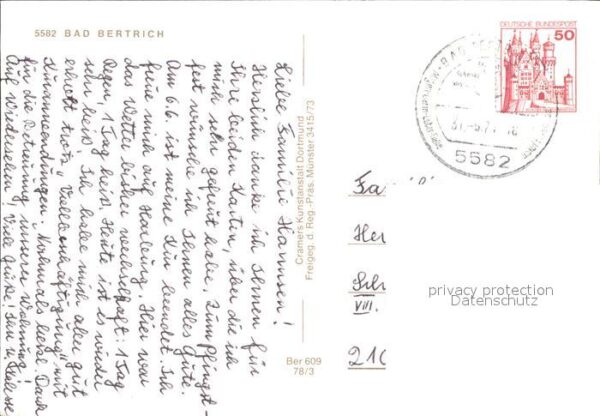 5582 BAD BERTRICH
Liebe Familie Hamsen!
Herzlich danke ich Ihnen für
Ihre beiden Karten, über die ich
mich sehr gefreut habe. Zum Pfingst-
fest wünsche ich Ihnen alles Gute.
Am 6.6. ist meine Kur beendet. Ich
freue mich auf Harburg. Hier war
das Wetter bisher wechselhaft: 1 Tag
Regen, 1 Tag heiß. Heute ist es wieder
sehr heiß. Ich habe mich aber gut
erholt trotz "Vollbeschäftigung" mit
Kuranwendungen. Nochmals herzl. Dank
für die Betreuung unserer Wohnung!
Auf Wiedersehen! Viele Grüße! Ihre
Cramers Kunstanstalt Dortmund
Freigeg. d. Reg.-Präs. Münster 3415/73
Ber 609
78/3
DEUTSCHE BUNDESPOST
50
5582
Fa
Her
Sch
VIII.
210
privacy protection
Datenschutz